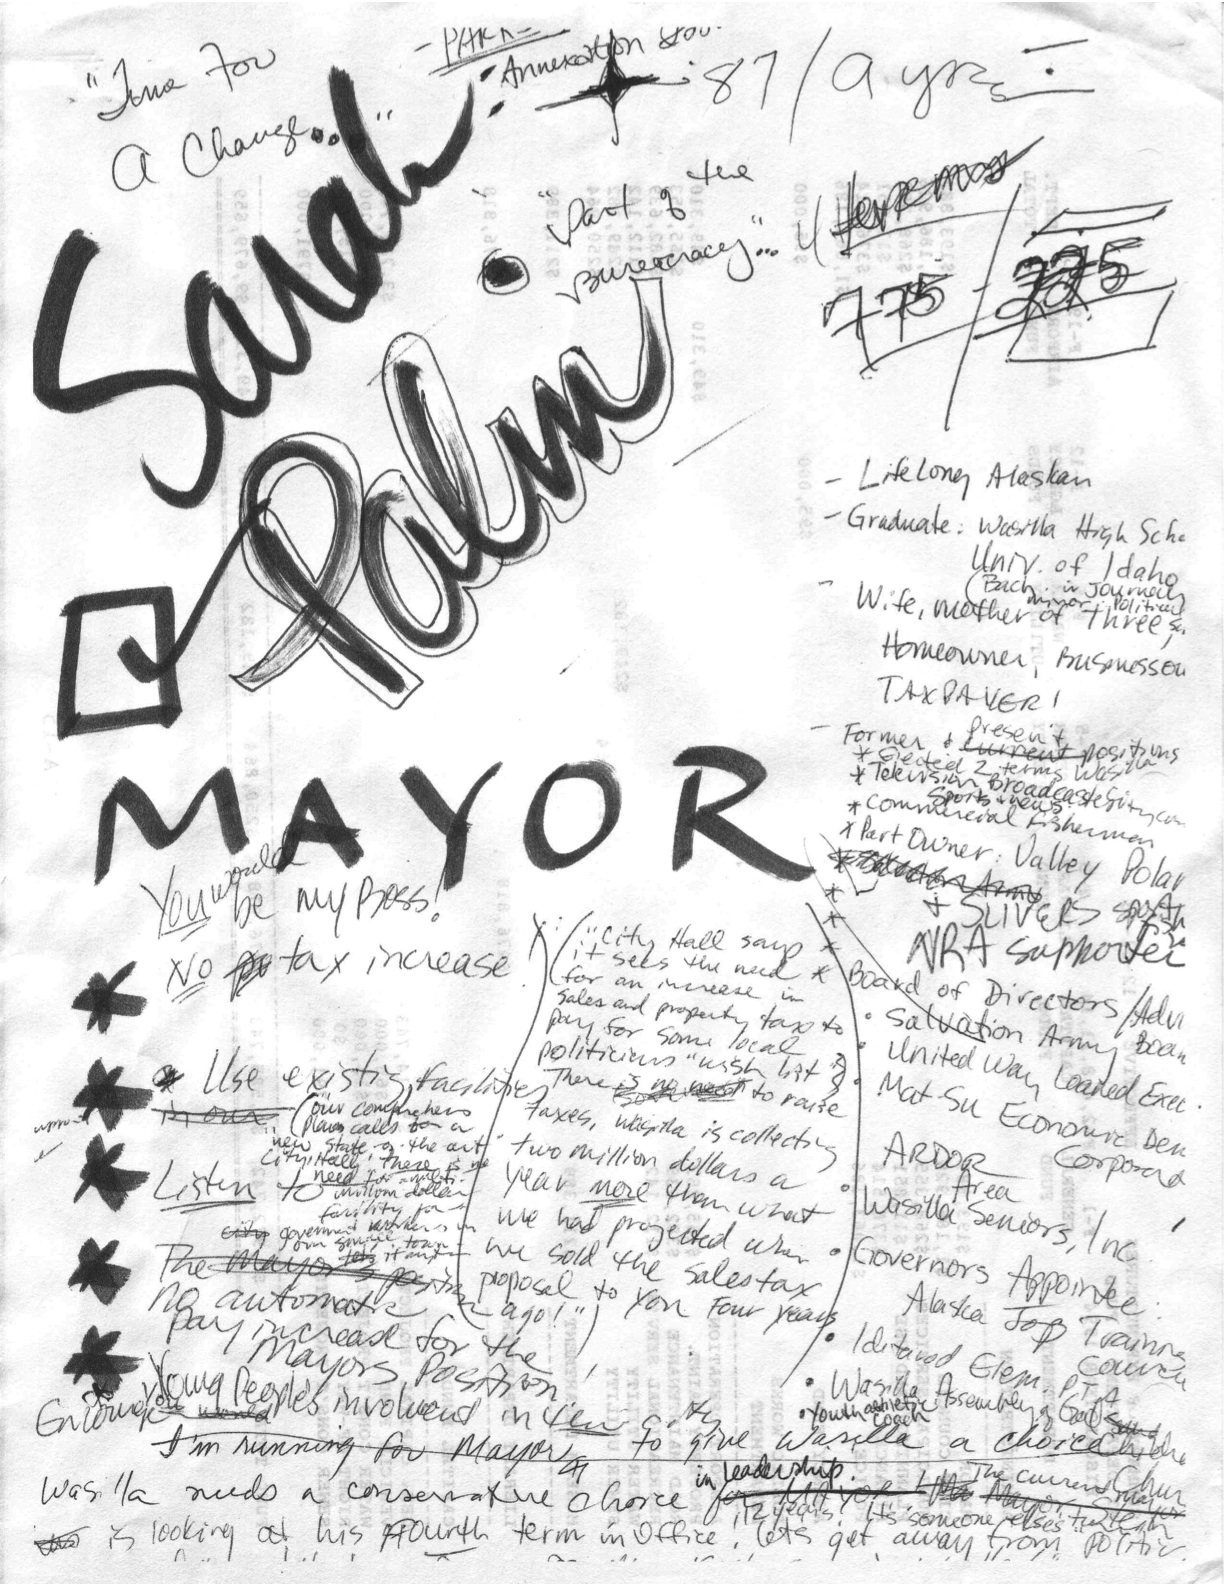 "Time For
A Change..."
- PARKS
Annexation
'87 / 9 yrs
Sarah
"Part of the
Bureocracy"...
775 - 225
Palin
MAYOR
- LifeLong Alaskan
- Graduate: Wasilla High Scho
Univ. of Idaho
(Bach. in Journ
minor: Political
- Wife, mother of Three
Homeowner, Businesso
TAXPAYER!
- Former + present
current positions
* Elected 2 terms Wasilla
* Television Broadcaste
Sports + news
* Commercial fisherman
* Part Owner: Valley Polar
Salvation Army
+ SLIVERS
NRA supporter
Board of Directors / Advi
• Salvation Army Boar
• United Way Loaned Exec.
• Mat-Su Economic Dev
Corpora
ARDOR
Area
• Wasilla Seniors, Inc.
• Governors Appointee:
Alaska Job Training
Council
• Iditarod Elem. PTA
• Wasilla Assembly of God
• Youth athletic
coach
You would
be my Boss!
No tax increase
* Use existing facilities
in our
("our comprehens
plan calls for a
new state-of-the-art
City Hall, there is no
need for a multi-
million dollar
facility for
city government workers in
our small town
Listen to
("City Hall says
it sees the need
for an increase in
sales and property tax to
pay for some local
politicians "wish list".
There is no need to raise
taxes, Wasilla is collecting
two million dollars a
year more than what
we had projected when
we sold the sales tax
proposal to you Four years
ago!")
The Mayor's
No automatic
pay increase for the
Mayors Position!
Encourage Young People's involvement in
I'm running for Mayor to give Wasilla a choice
in leadership.
Wasilla needs a conservative choice for Mayor
The current mayor
12 years! It's someone else's turn
is looking at his Fourth term in Office. lets get away from Politic